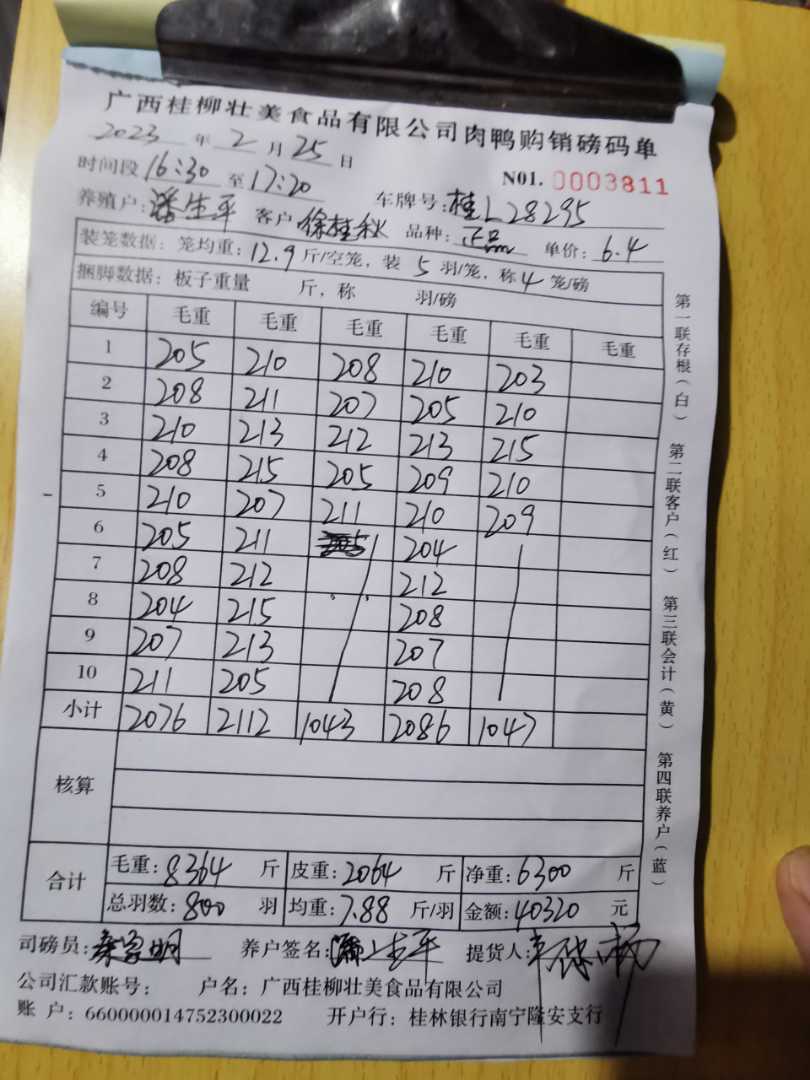 广西桂柳壮美食品有限公司肉鸭购销磅码单
2023 年 2 月 25 日
时间段 16:30 至 17:20 N01. 0003811
养殖户: 潘生平 客户 徐桂秋 车牌号: 桂L28295
品种: 正品 单价: 6.4
装笼数据: 笼均重: 12.9 斤/空笼, 装 5 羽/笼, 称 4 笼/磅
捆脚数据: 板子重量 斤, 称 羽/磅
编号 毛重 毛重 毛重 毛重 毛重 毛重
1 205 210 208 210 203
2 208 211 207 205 210
3 210 213 212 213 215
4 208 215 205 209 210
5 210 207 211 210 209
6 205 211 204
7 208 212 212
8 204 215 208
9 207 213 207
10 211 205 208
小计 2076 2112 1043 2086 1047
核算
合计 毛重: 8364 斤 皮重: 2064 斤 净重: 6300 斤
总羽数: 800 羽 均重: 7.88 斤/羽 金额: 40320 元
司磅员: 养户签名: 潘生平 提货人:
公司汇款账号: 户名: 广西桂柳壮美食品有限公司
账 户: 660000014752300022 开户行: 桂林银行南宁隆安支行
第一联存根(白) 第二联客户(红) 第三联会计(黄) 第四联养户(蓝)